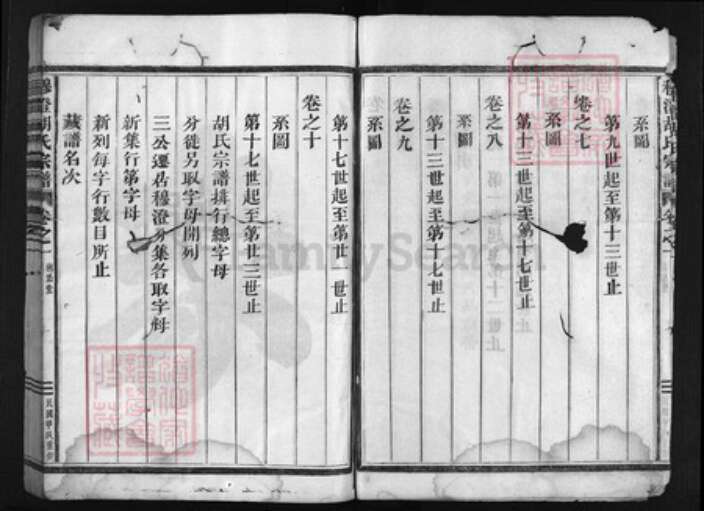 系圖
第九世起至第十三世止
卷之七
系圖
第十三世起至第十七世止
卷之八
系圖
第十三世起至第十七世止
卷之九
系圖
第十七世起至第廿一世止
系圖
卷之十
第十七世起至第廿三世止
胡氏宗譜排行總字母
分徙另取字母開列
三公遷居穆澄分集各取字母
新集行第字母
新列每字行數目所止
藏譜名次
穆澄胡氏宗譜
卷之一
FamilySearch